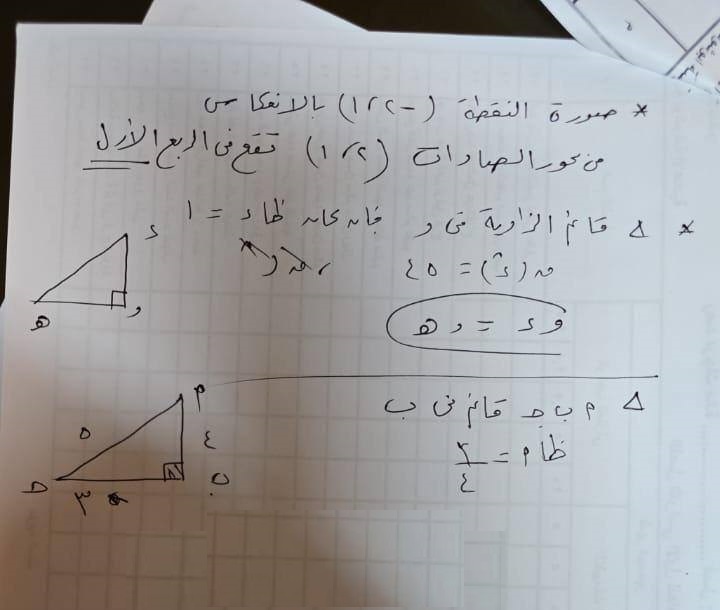 * صورة النقطة (-٢، ١) بالانعكاس
في محور الصادات (٢، ١) تقع في الربع الأول
* Δ قائم الزاوية في و فإنه كانه ظاء = ١
ء
ه
و
ق(ء) = ٤٥
وء = وه
Δ م ب ج قائم في ب
ظا م = ٣/٤
م
٥
٤
ح
٣
ب